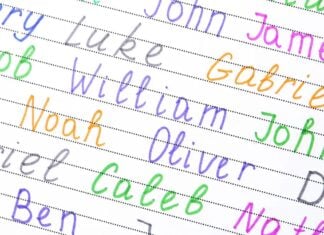 John Jame
ry Luke Gabrie
ob William John
Noah Oliver D
iel Caleb Nath
Ben